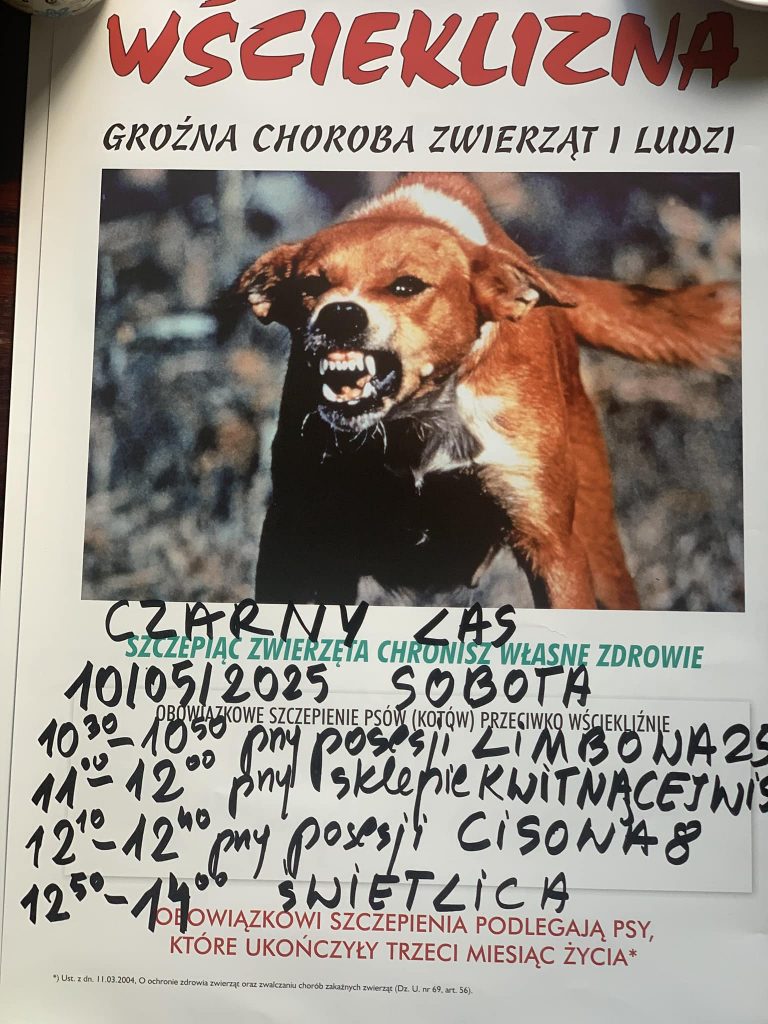 WŚCIEKLIZNA
GROŹNA CHOROBA ZWIERZĄT I LUDZI
CZARNY LAS
SZCZEPIĄC ZWIERZĘTA CHRONISZ WŁASNE ZDROWIE
10/05/2025 SOBOTA
OBOWIĄZKOWE SZCZEPIENIE PSÓW (KOTÓW) PRZECIWKO WŚCIEKLIŹNIE
10³⁰-10⁵⁰ pny posesji LIMBOWA 25
11⁰⁰-12⁰⁰ pny sklepie KWITNĄCEJ WIŚ
12¹⁰-12⁴⁰ pny posesji CISOWA 8
12⁵⁰-14⁰⁰ ŚWIETLICA
OBOWIĄZKOWI SZCZEPIENIA PODLEGAJĄ PSY,
KTÓRE UKOŃCZYŁY TRZECI MIESIĄC ŻYCIA*
*) Ust. z dn. 11.03.2004, O ochronie zdrowia zwierząt oraz zwalczaniu chorób zakaźnych zwierząt (Dz. U. nr 69, art. 56).